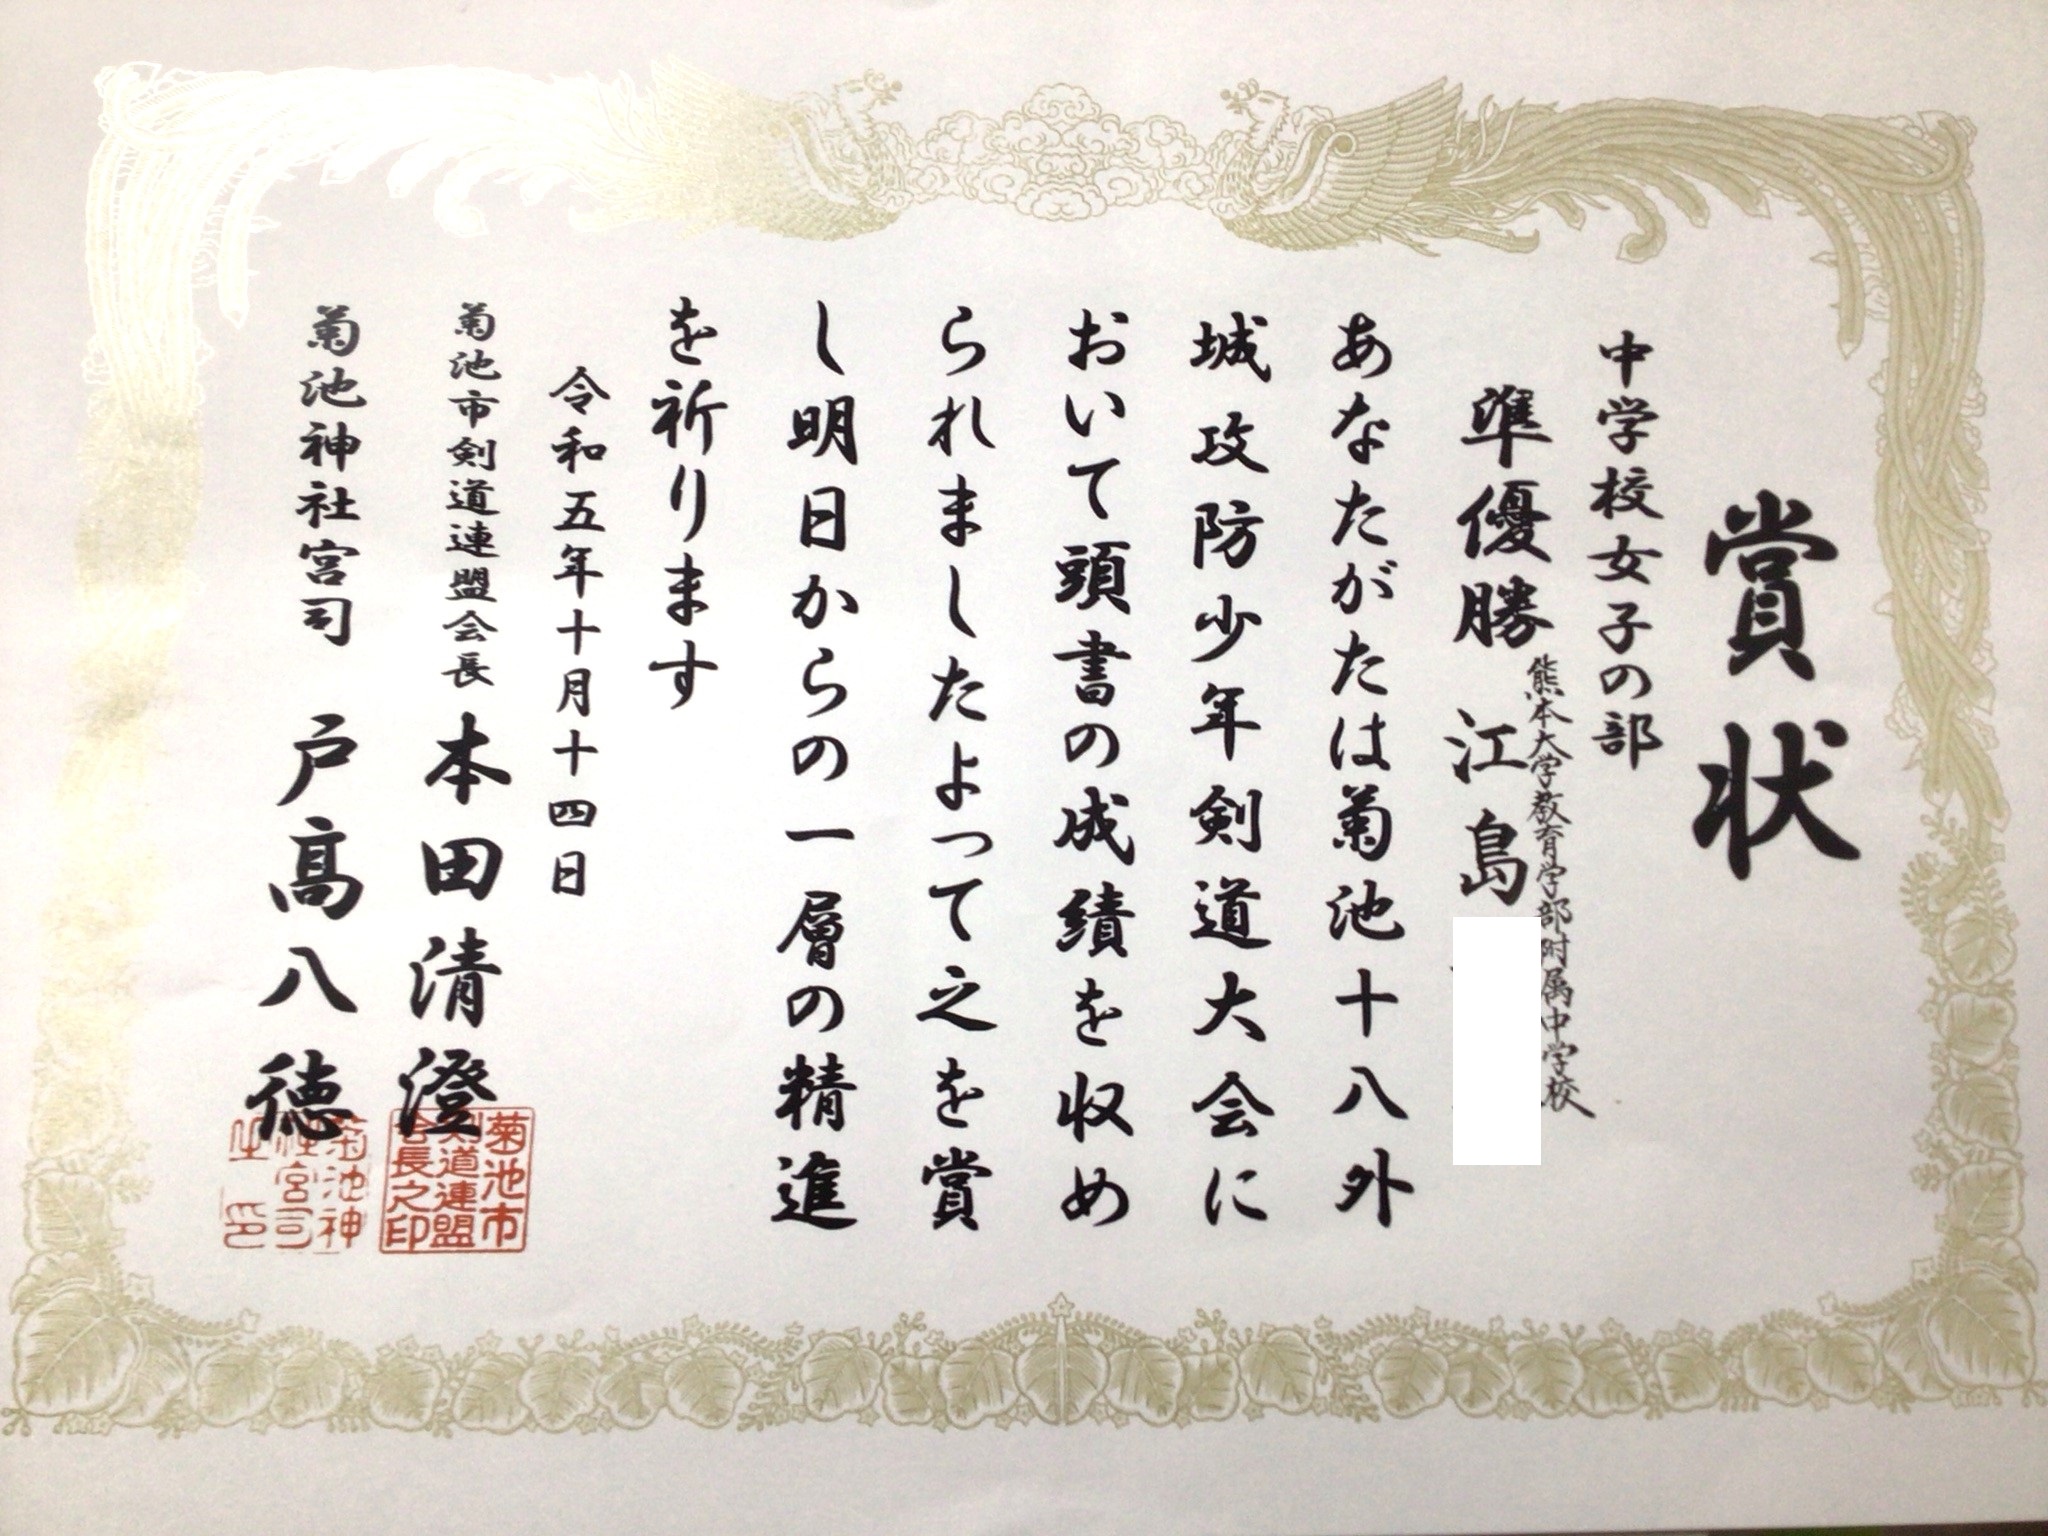 賞状
中学校女子の部
熊本大学教育学部附属中学校
準優勝 江島
あなたがたは菊池十八外
城攻防少年剣道大会に
おいて頭書の成績を収め
られましたよって之を賞
し明日からの一層の精進
を祈ります
令和五年十月十四日
菊池市剣道連盟会長 本田清澄
菊池市
剣道連盟
会長之印
菊池神社宮司 戸髙八徳
菊池神
社宮司
之印